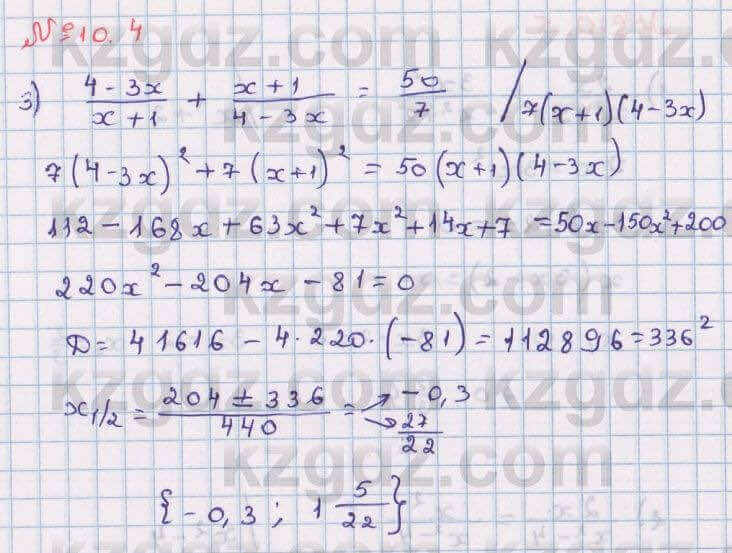 №10.4
3) (4-3x)/(x+1) + (x+1)/(4-3x) = 50/7 / 7(x+1)(4-3x)
7(4-3x)² + 7(x+1)² = 50(x+1)(4-3x)
112 - 168x + 63x² + 7x² + 14x + 7 = 50x - 150x² + 200
220x² - 204x - 81 = 0
D = 41616 - 4·220·(-81) = 112896 = 336²
x₁/₂ = (204 ± 336)/440 = → -0,3 → 27/22
{-0,3 ; 1 5/22}
kzgdz.com